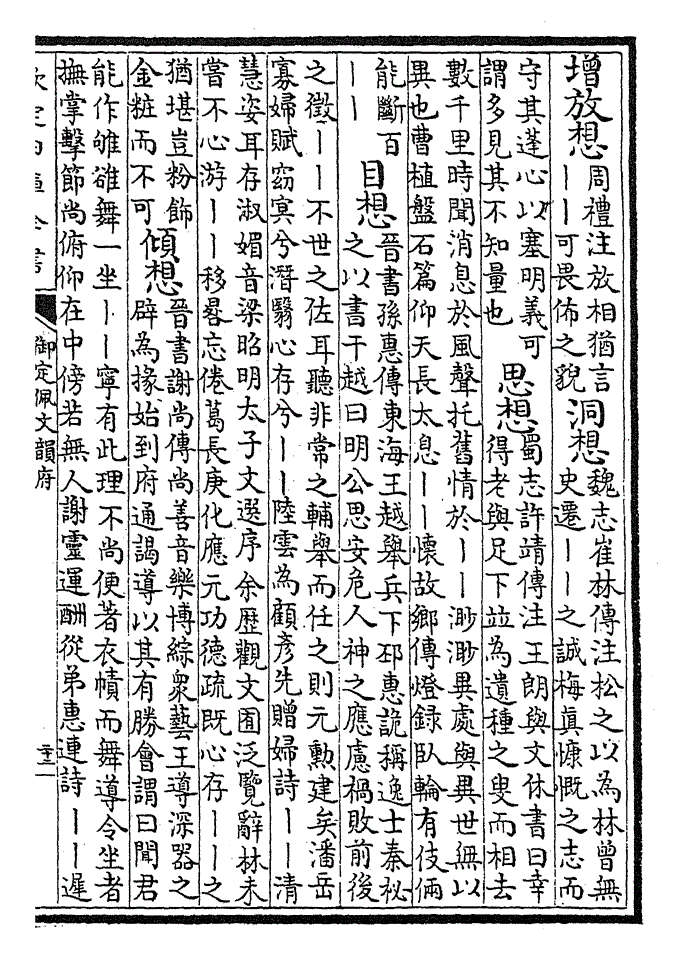 增放想 周禮注放相猶言
丨丨可畏怖之貌
洞想 魏志崔林傳注松之以為林曾無
史遷丨丨之誠梅真慷慨之志而
守其蓬心以塞明義可
謂多見其不知量也
思想 蜀志許靖傳注王朗與文休書曰幸
得老與足下並為遺種之叟而相去
數千里時聞消息於風聲托舊情於丨丨渺渺異處與異世無以
異也曹植盤石篇仰天長太息丨丨懷故鄉傳燈錄臥輪有伎倆
能斷百
丨丨
目想 晉書孫惠傳東海王越舉兵下邳惠詭稱逸士秦祕
之以書干越曰明公思安危人神之應慮禍敗前後
之徵丨丨不世之佐耳聽非常之輔舉而任之則元勳建矣潘岳
寡婦賦窈冥兮潛翳心存兮丨丨陸雲為顧彥先贈婦詩丨丨清
慧姿耳存淑媚音梁昭明太子文選序余歷觀文囿泛覽辭林未
嘗不心游丨丨移晷忘倦葛長庚化應元功德疏既心存丨丨之
猶堪豈粉飾
金粧而不可
傾想 晉書謝尚傳尚善音樂博綜衆藝王導深器之
辟為掾始到府通謁導以其有勝會謂曰聞君
能作鴝鵒舞一坐丨丨寧有此理不尚便著衣幘而舞導令坐者
撫掌擊節尚俯仰在中傍若無人謝靈運酬從弟惠連詩丨丨遲
欽定四庫全書
御定佩文韻府